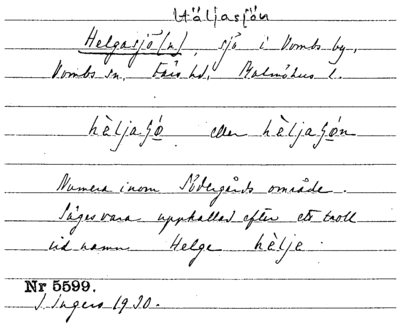 Häljasjön
Helgasjö(n), sjö i Vombs by,
Vombs sn. Färs hd. Malmöhus l.
hèljaṣö eller hèljaṣön
Numera inom Södergårds område.
Säges vara uppkallad efter ett troll
vid namn Helge hèlje
Nr 5599.
J Ingers 1930.